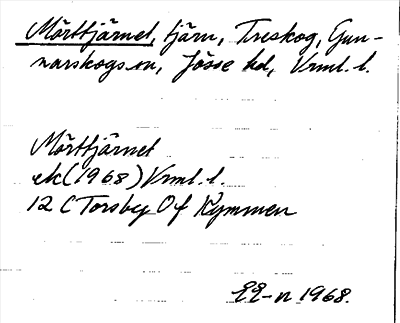 Mörttjärnet, tjärn, Treskog, Gun-
narskogs sn, Jösse hd, Vrml. l.
Mörttjärnet
ek (1968) Vrml. l.
12 C Torsby Of Kymmen
1968.